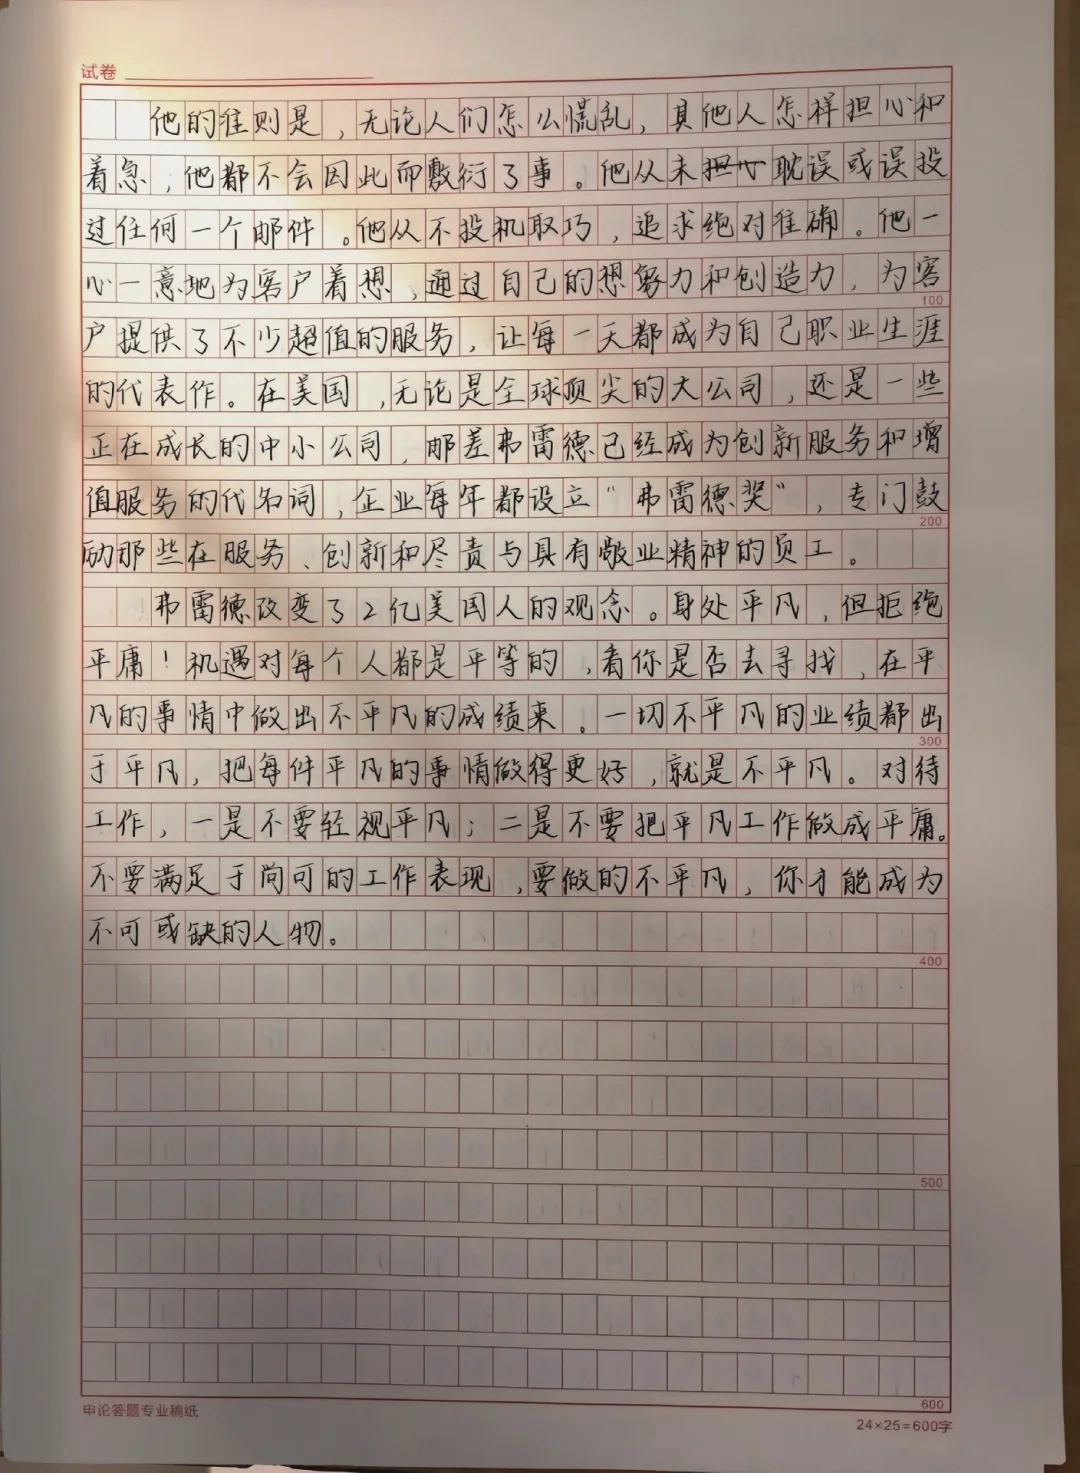 试卷
他的准则是，无论人们怎么慌乱，其他人怎样担心和
着急，他都不会因此而敷衍了事。他从未担心耽误或误投
过任何一个邮件。他从不投机取巧，追求绝对准确。他一
心一意地为客户着想，通过自己的想努力和创造力，为客
100
户提供了不少超值的服务，让每一天都成为自己职业生涯
的代表作。在美国，无论是全球顶尖的大公司，还是一些
正在成长的中小公司，邮差弗雷德已经成为创新服务和增
值服务的代名词，企业每年都设立“弗雷德奖”，专门鼓
200
励那些在服务、创新和尽责与具有敬业精神的员工。
弗雷德改变了2亿美国人的观念。身处平凡，但拒绝
平庸！机遇对每个人都是平等的，看你是否去寻找，在平
凡的事情中做出不平凡的成绩来。一切不平凡的业绩都出
300
于平凡，把每件平凡的事情做得更好，就是不平凡。对待
工作，一是不要轻视平凡；二是不要把平凡工作做成平庸。
不要满足于尚可的工作表现，要做的不平凡，你才能成为
不可或缺的人物。
400
500
600
申论答题专业稿纸
24×25=600字